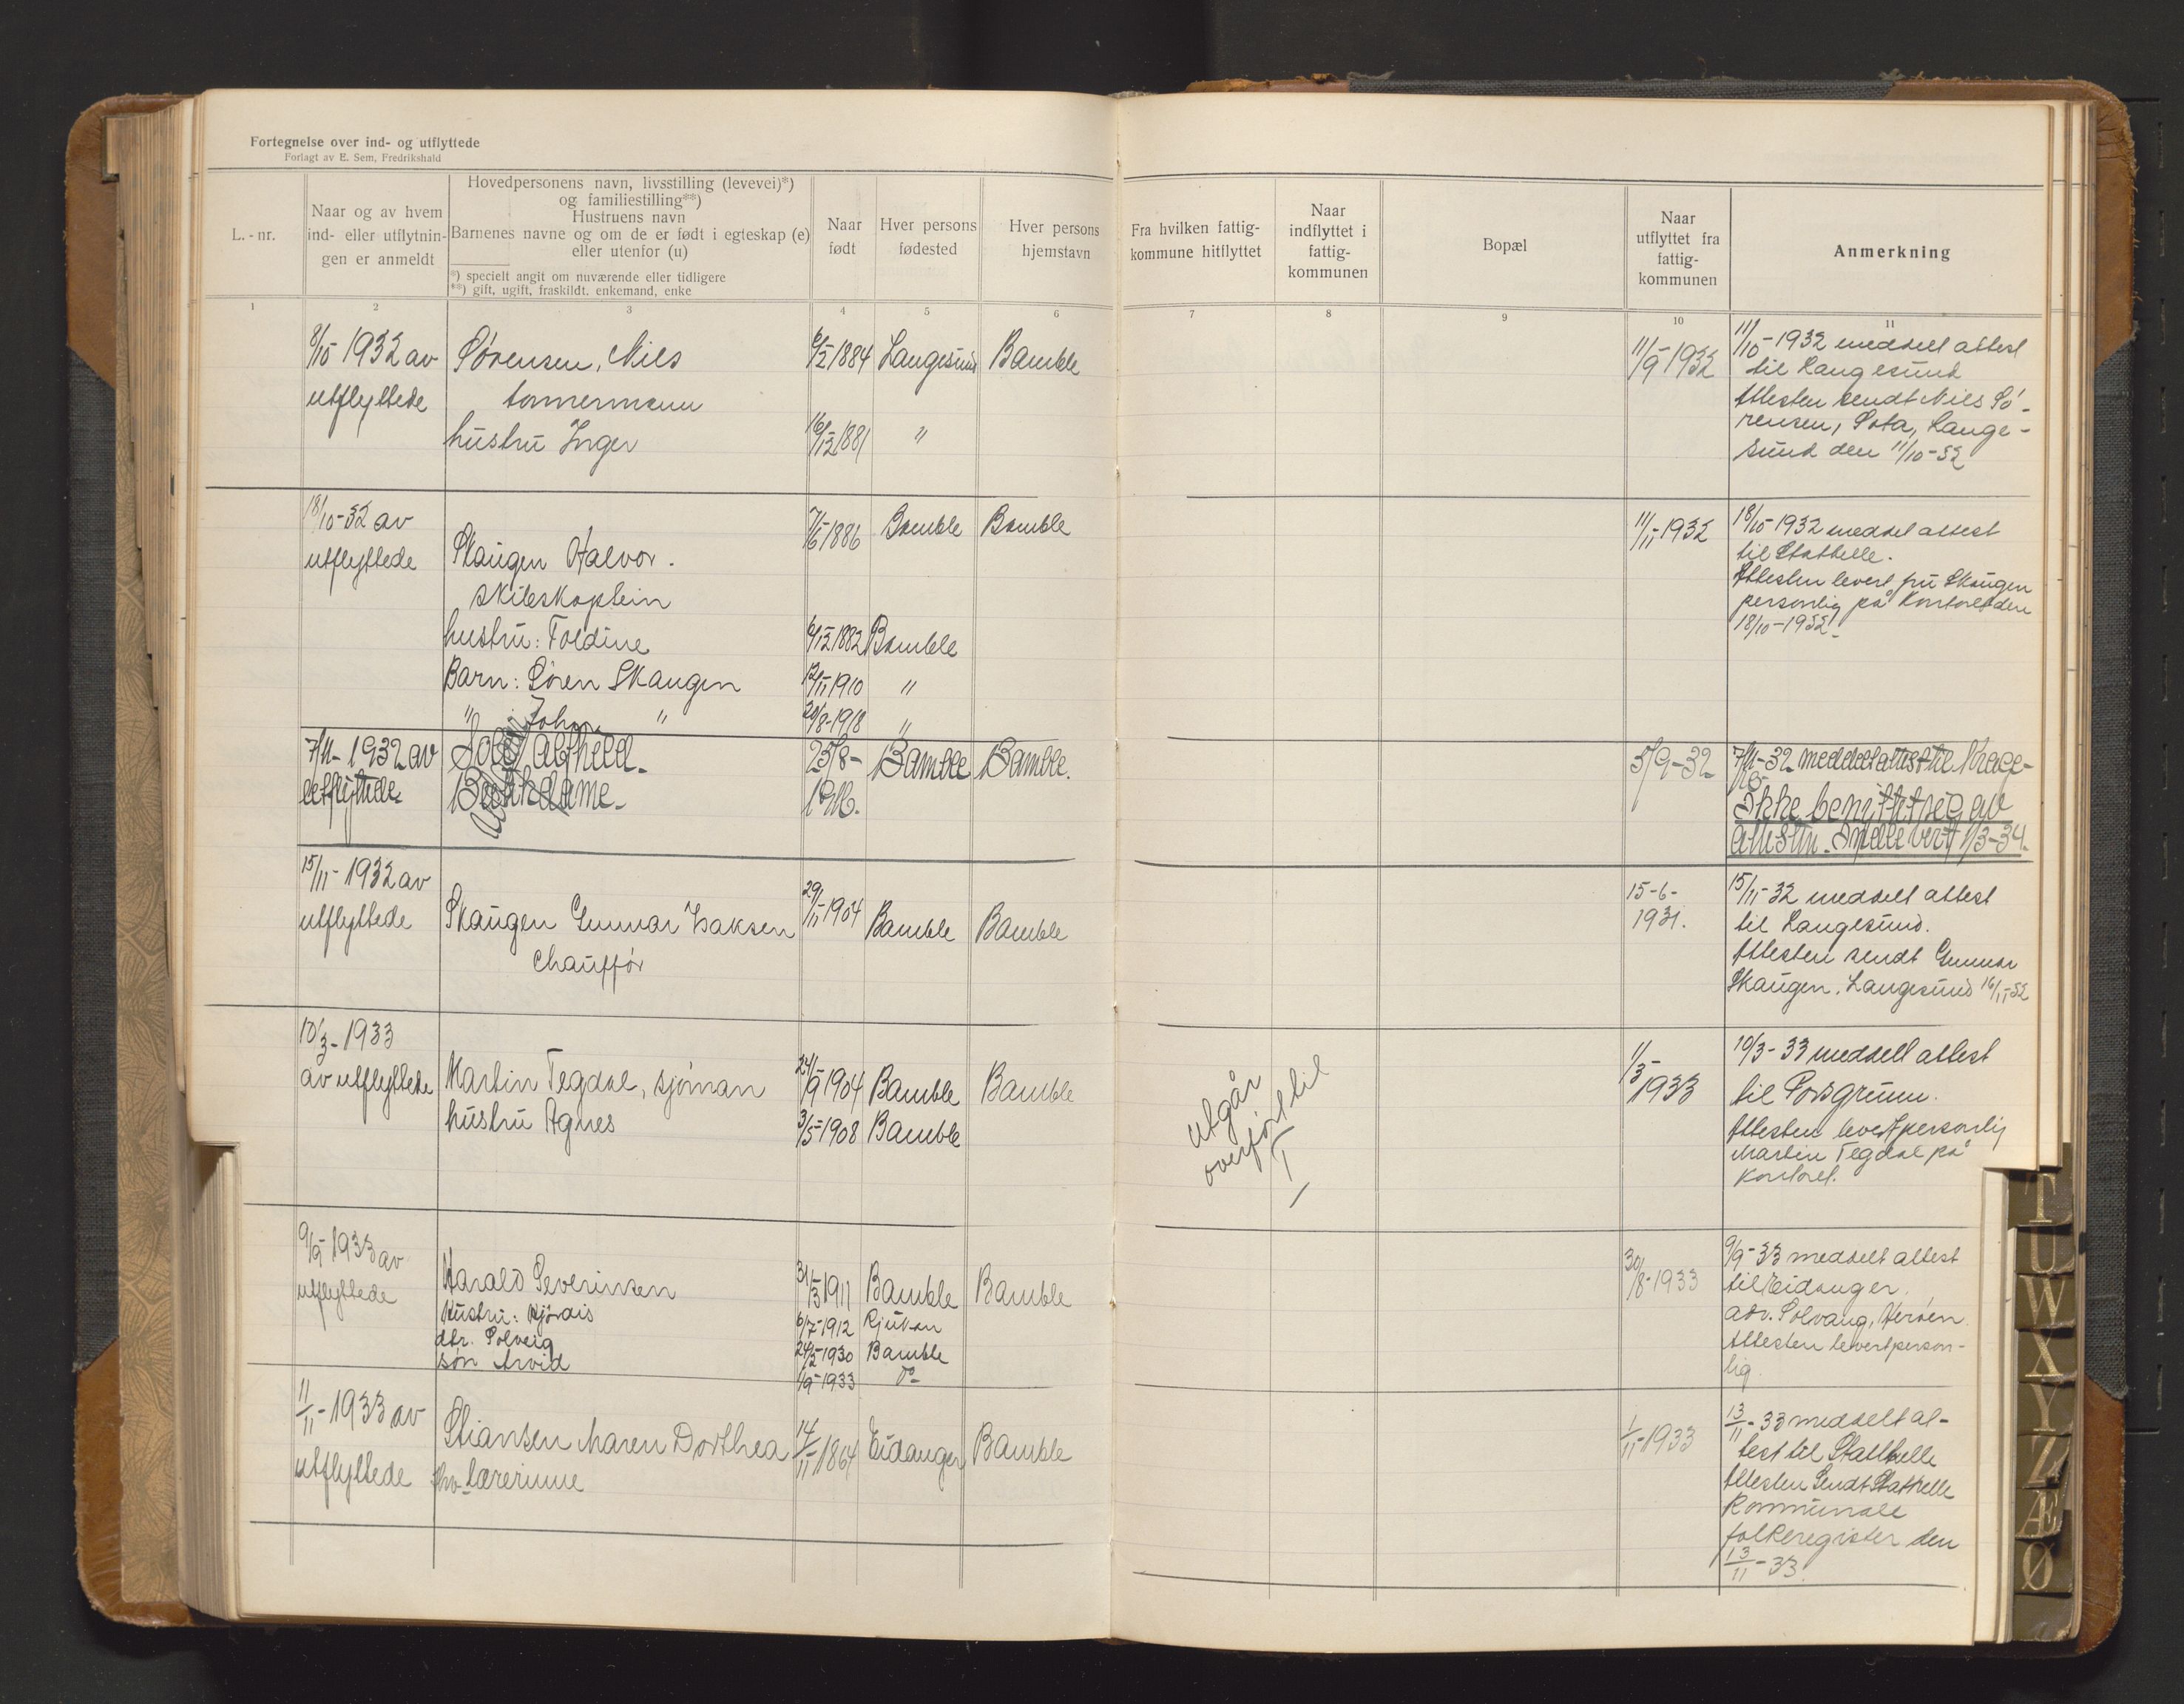 Fortegnelse over ind- og utflyttede
Forlagt av E. Sem, Fredrikshald
L.-nr.
Naar og av hvem
ind- eller utflytnin-
gen er anmeldt
Hovedpersonens navn, livsstilling (levevei)*)
og familiestilling**)
Hustruens navn
Barnenes navne og om de er født i egteskap (e)
eller utenfor (u)
*) specielt angit om nuværende eller tidligere
**) gift, ugift, fraskildt, enkemand, enke
Naar
født
Hver persons
fødested
Hver persons
hjemstavn
Fra hvilken fattig-
kommune hitflyttet
Naar
indflyttet i
fattig-
kommunen
Bopæl
Naar
utflyttet fra
fattig-
kommunen
Anmerkning
1 2 3 4 5 6 7 8 9 10 11
8/10-1932 av
utflyttede
Sørensen, Nils
tømmermann
hustru Inger
6/2 1884 Langesund Bamble
16/12 1881 "
11/9-1932
11/10-1932 meddelt attest
til Langesund
Attesten sendt Niels Sø-
rensen, Sota, Lange-
sund den 11/10-32
18/10-32 av
utflyttede
Skaugen Halvor.
skibskaptein
hustru: Toldine
Barn: Søren Skaugen
" Johan "
7/6 1886 Bamble Bamble
6/12 1882 Bamble
12/11 1910 "
20/8-1918 "
11/11-1932
18/10-1932 meddel attest
til Stathelle.
Attesten levert fru Skaugen
personlig på kontoret den
18/10-1932-
7/11-1932 av
utflyttede
Alfhild
25/8- Bamble Bamble.
5/9-32
7/11-32 meddelt attest til Krage-
rø.
Ikke benyttet sig av
attesten. Innlevert 1/3-34.
15/11-1932 av
utflyttede
Skaugen Gunnar Isaksen
Chauffør
29/11-1904 Bamble Bamble
15-6-
1931.
15/11-32 meddelt attest
til Langesund.
Attesten sendt Gunnar
Skaugen, Langesund 16/11-32
10/3-1933
av utflyttede
Martin Tegdal, sjöman
hustru Agnes
24/9 1904 Bamble Bamble
3/5-1908 Bamble
utgår
overført til
I
1/3-
1933
10/3-33 meddelt attest
til Porsgrunn.
Attesten levert personlig
Martin Tegdal på
kontoret.
9/9-1933 av
utflyttede
Harald Severinsen
Hustru: Hjördis
dtr. Solveig
søn Arvid
31/3 1911 Bamble Bamble
6/7-1912 Rjukan
24/2-1930 Bamble
1/9-1933 do
30/8-1933
9/9-33 meddelt attest
til Eidanger.
adr. Solvang, Herøen.
Attesten levert person-
lig.
11/11-1933 av
utflyttede
Stiansen Maren Dorthea
fhv. lærerinne
14/11-1864 Eidanger Bamble
1/11-1933
13/11-33 meddelt at-
test til Stathelle
Attesten sendt Stathelle
Kommunale
folkeregister den
13/11-33.
T
U
W
X
Y
Z
Æ
Ø